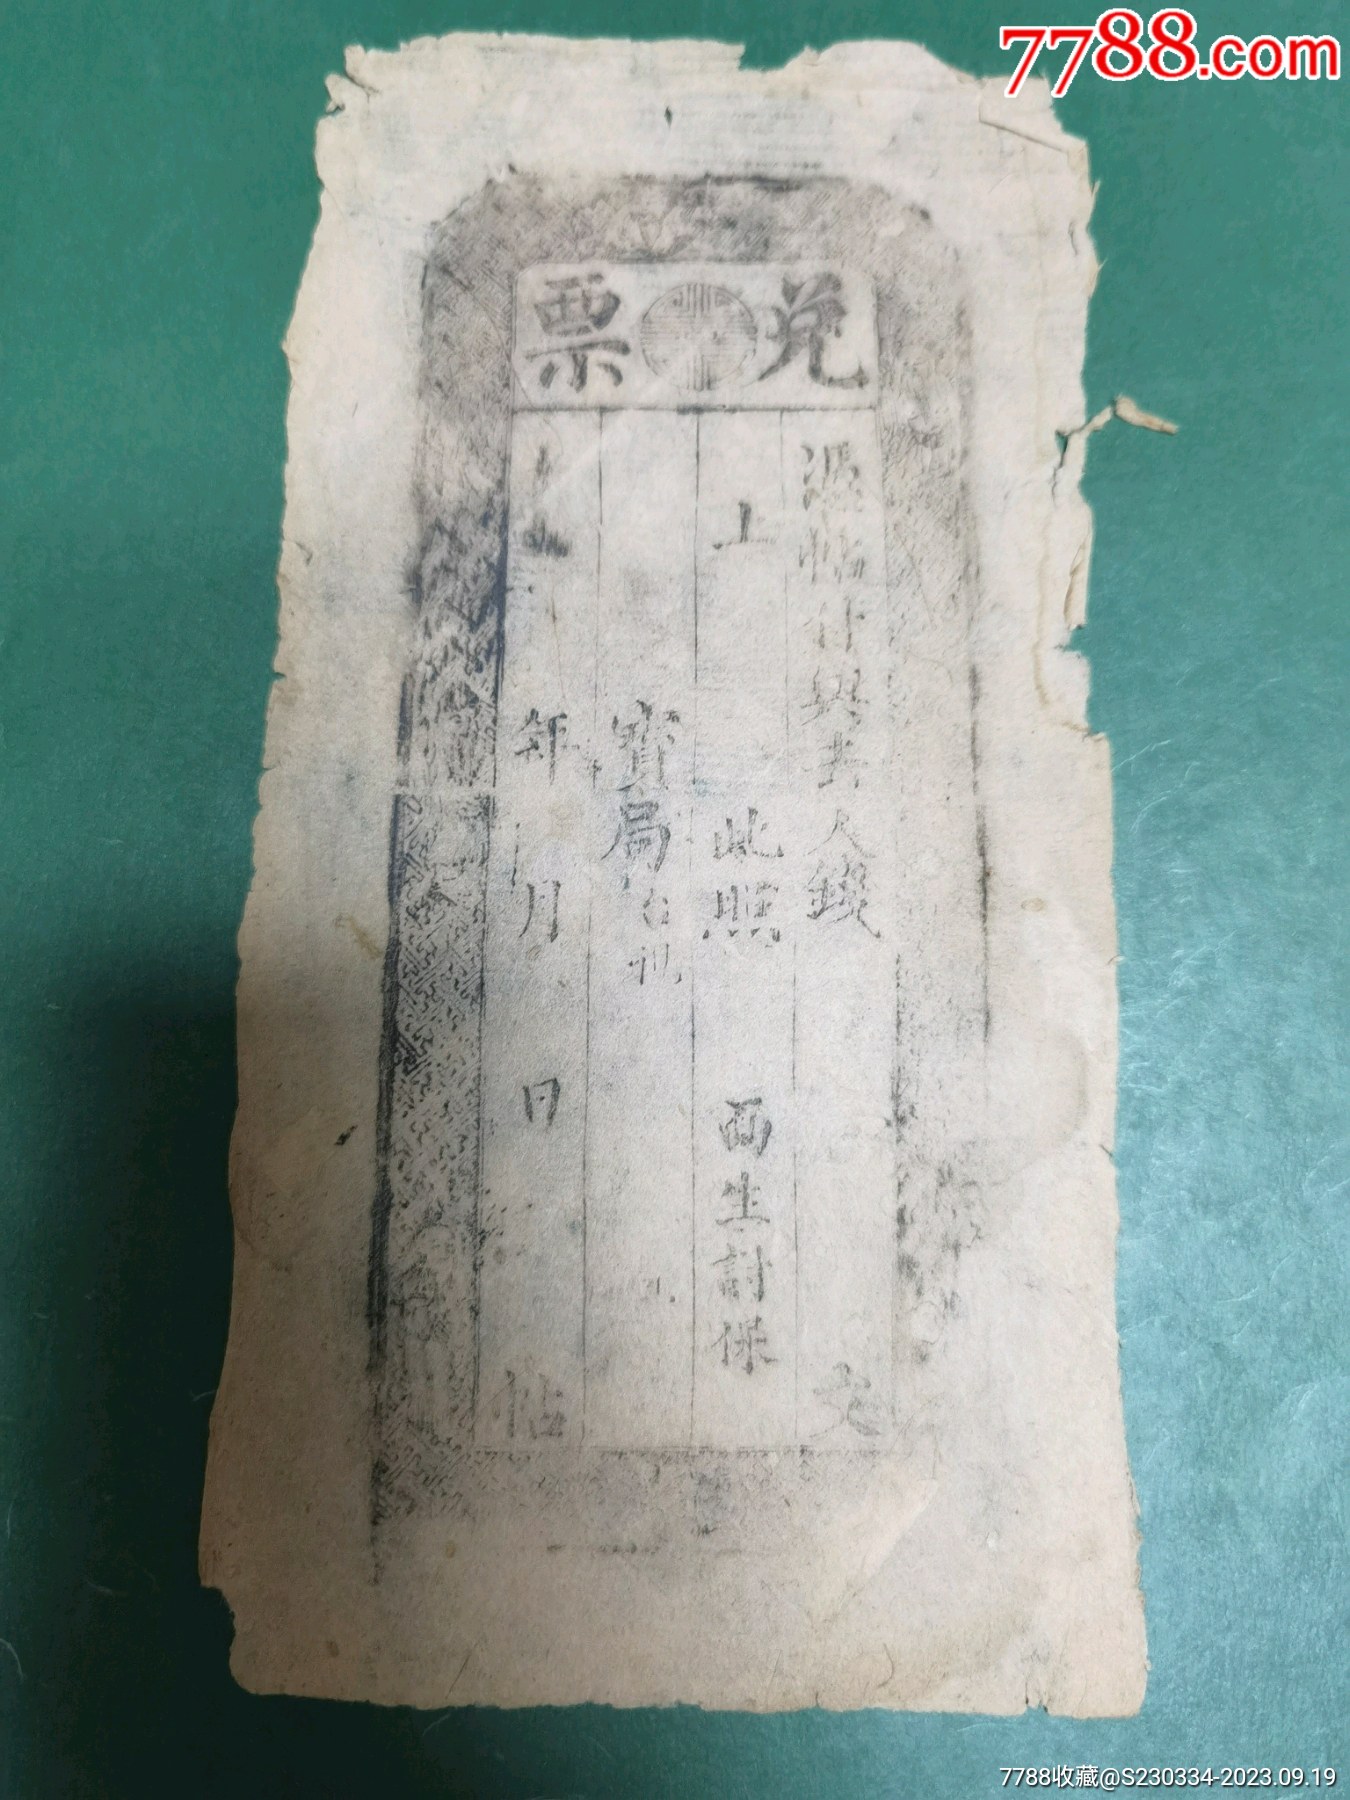 7788.com
兌票
憑帖什與去人錢 文
上 此照 面生討保
寶局台
年 月 日 帖
7788收藏@S230334-2023.09.19